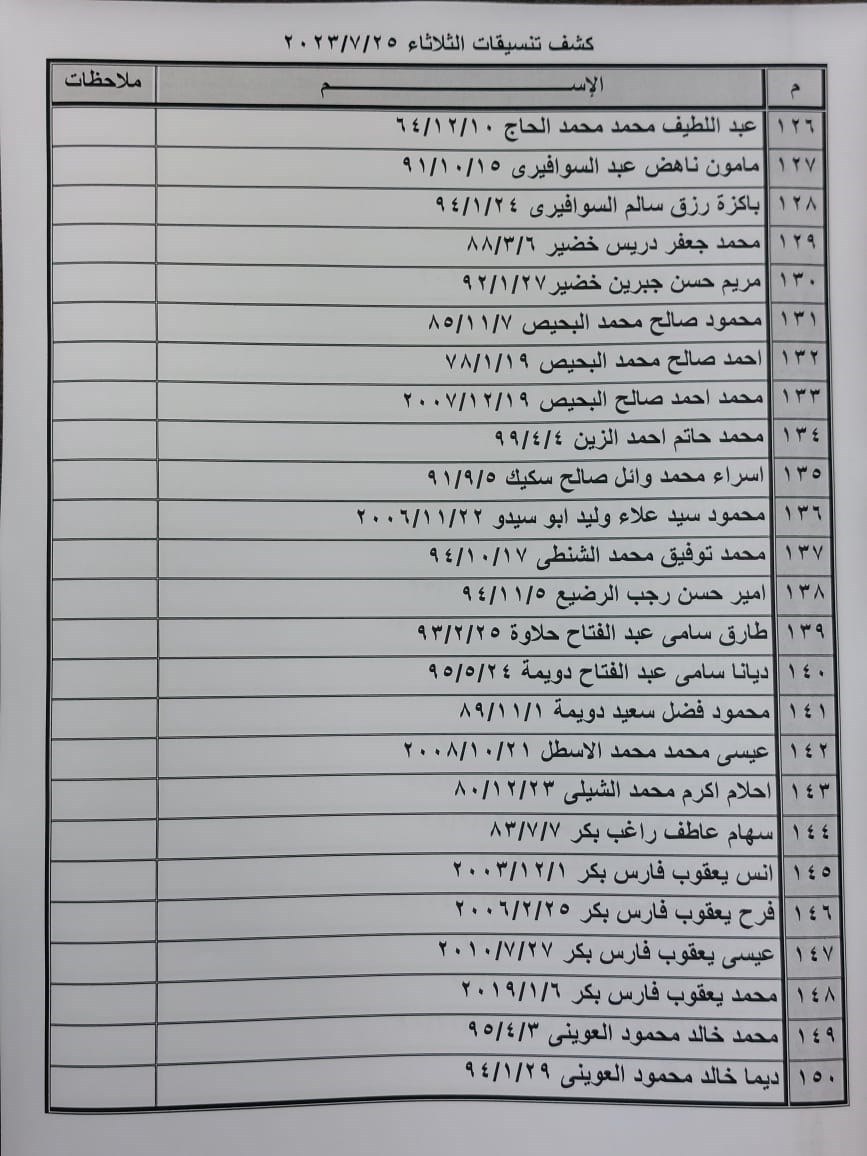 كشف تنسيقات الثلاثاء ٢٠٢٣/٧/٢٥
م الإســـــــــم ملاحظات
١٢٦ عبد اللطيف محمد محمد الحاج ٦٤/١٢/١٠
١٢٧ مامون ناهض عبد السوافيرى ٩١/١٠/١٥
١٢٨ باكزة رزق سالم السوافيرى ٩٤/١/٢٤
١٢٩ محمد جعفر دريس خضير ٨٨/٣/٦
١٣٠ مريم حسن جبرين خضير ٩٢/١/٢٧
١٣١ محمود صالح محمد البحيص ٨٥/١١/٧
١٣٢ احمد صالح محمد البحيص ٧٨/١/١٩
١٣٣ محمد احمد صالح البحيص ٢٠٠٧/١٢/١٩
١٣٤ محمد حاتم احمد الزين ٩٩/٤/٤
١٣٥ اسراء محمد وائل صالح سكيك ٩١/٩/٥
١٣٦ محمود سيد علاء وليد ابو سيدو ٢٠٠٦/١١/٢٢
١٣٧ محمد توفيق محمد الشنطى ٩٤/١٠/١٧
١٣٨ امير حسن رجب الرضيع ٩٤/١١/٥
١٣٩ طارق سامى عبد الفتاح حلاوة ٩٣/٢/٢٥
١٤٠ ديانا سامى عبد الفتاح دويمة ٩٥/٥/٢٤
١٤١ محمود فضل سعيد دويمة ٨٩/١١/١
١٤٢ عيسى محمد محمد الاسطل ٢٠٠٨/١٠/٢١
١٤٣ احلام اكرم محمد الشيلى ٨٠/١٢/٢٣
١٤٤ سهام عاطف راغب بكر ٨٣/٧/٧
١٤٥ انس يعقوب فارس بكر ٢٠٠٣/١٢/١
١٤٦ فرح يعقوب فارس بكر ٢٠٠٦/٢/٢٥
١٤٧ عيسى يعقوب فارس بكر ٢٠١٠/٧/٢٧
١٤٨ محمد يعقوب فارس بكر ٢٠١٩/١/٦
١٤٩ محمد خالد محمود العوينى ٩٥/٤/٣
١٥٠ ديما خالد محمود العوينى ٩٤/١/٢٩